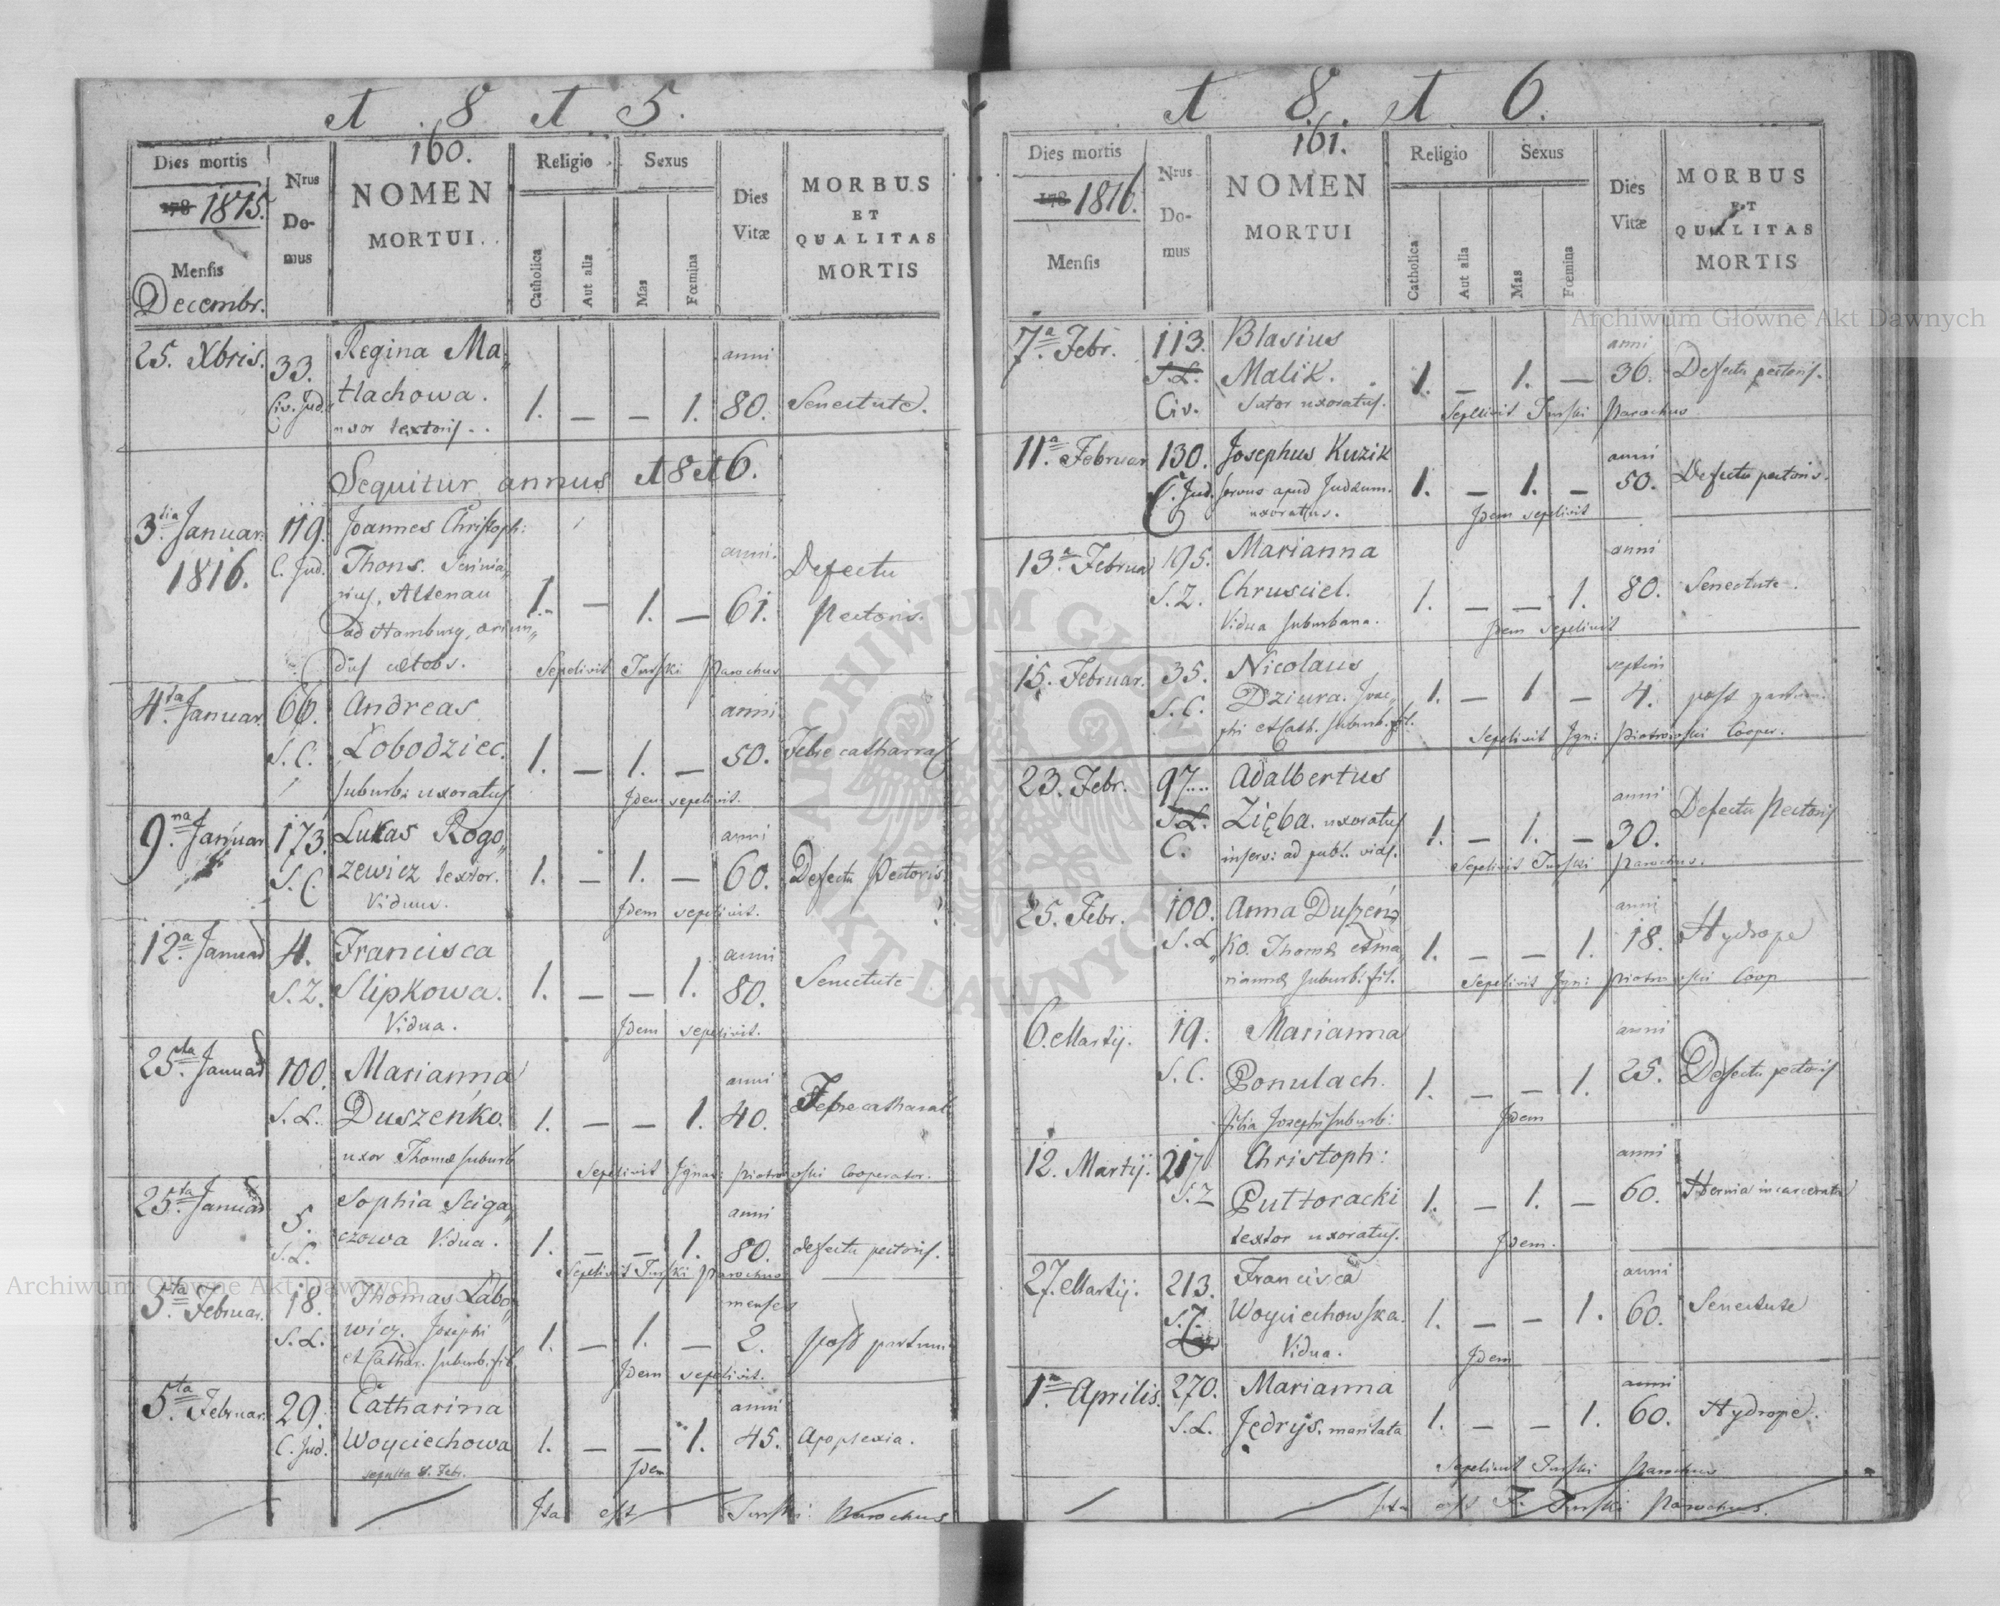 1815.
160.
Dies mortis
178 1815.
Mensis
Decembr.
Nrus
Do-
mus
NOMEN
MORTUI.
Religio
Catholica
Aut alia
Sexus
Mas
Fœmina
Dies
Vitæ
MORBUS
ET
QUALITAS
MORTIS
25. Xbris. 33. Regina Ma„ anni
Civ. Jud. tlachowa. 1. — — 1. 80. Senectute.
uxor textoris.
Sequitur annus 1816.
3tia Januar. 119. Joannes Christoph:
1816. C. Jud. Thons. anni. Defectu
Altenau 1. — 1. — 61. Pectoris.
ad Hamburg, oriun„
dus cœlebs. Sepelivit Turski Parochus
4ta Januar. 66. Andreas anni
S. C. Łobodziec. 1. — 1. — 50. Febre catharral
suburb: uxoratus Idem sepelivit.
9na Januar 173. Lukas Rogo„ anni
S. C. zewicz textor. 1. — 1. — 60. Defectu Pectoris
Viduus. Idem sepelivit.
12a Januar 4. Francisca anni
S. Z. Slipkowa. 1. — — 1. 80. Senectute
Vidua. Idem sepelivit.
25ta Januar 100. Marianna anni
S. L. Duszeńko. 1. — — 1. 40. Febre catharral
uxor Thomæ suburb Sepelivit Ignat: Piotrowski Cooperator.
25ta Januar 5. Sophia Sciga„ anni
S. L. czowa Vidua. 1. — — 1. 80. defectu pectoris.
Sepelivit Turski Parochus
5ta Februar. 18. Thomas Łabo„ menses
S. L. wicz. Josephi 1. — 1. — 2. post partum
et Cathar. suburb. fil. Idem sepelivit.
5ta Februar. 29. Catharina anni
C. Jud. Woyciechowa 1. — — 1. 45. Apoplexia.
sepulta 8. Febr. Idem
Ita est Turski: Parochus
1816.
161.
Dies mortis
178 1816.
Mensis
Nrus
Do-
mus
NOMEN
MORTUI
Religio
Catholica
Aut alia
Sexus
Mas
Fœmina
Dies
Vitæ
MORBUS
ET
QUALITAS
MORTIS
7a Febr. 113. Blasius anni
S. L. Malik. 1. — 1. — 36. Defectu pectoris.
Civ. Sator uxoratus. Sepelivit Turski Parochus
11a Februar 130. Josephus Kuzik anni
C. Jud. servus apud Judæum. 1. — 1. — 50. Defectu pectoris.
uxoratus. Idem sepelivit
13a Februar 195. Marianna anni
S. Z. Chrusciel. 1. — — 1. 80. Senectute.
Vidua suburbana. Idem sepelivit
15. Februar. 35. Nicolaus septim
S. C. Dziura. Jose„ 1. — 1 — 4. post partum.
phi et Cath. suburb. fil. Sepelivit Ign: Piotrowski Cooper.
23. Febr. 97. Adalbertus anni
S. L. Zięba. uxoratus 1. — 1. — 30. Defectu Pectoris
C. inserv: ad publ. vias. Sepelivit Turski Parochus.
25. Febr. 100. Anna Duszeń„ anni
S. L ko. Thomæ et Ma„ 1. — — 1. 18. Hydrope
riannæ suburb: fil. Sepelivit Ign: Piotrowski Coop
6. Martij. 19. Marianna anni
S. C. Ponulach. 1. — — 1. 25. Defectu pectoris
filia Josephi suburb: Idem
12. Martij. 217 Christoph: anni
S. Z Puttoracki 1. — 1. — 60. Hernia incarcerata
textor uxoratus. Idem.
27. Martij. 213. Francisca anni
S. Z. Woyciechowska. 1. — — 1. 60. Senectute
Vidua. Idem
1a Aprilis. 270. Marianna anni
S. L. Jędrys. maritata 1. — — 1. 60. Hydrope.
Sepelivit Turski Parochus
Ita est F. Turski Parochus.
Archiwum Główne Akt Dawnych
Archiwum Główne Akt Dawnych
ARCHIWUM GŁÓWNE AKT DAWNYCH